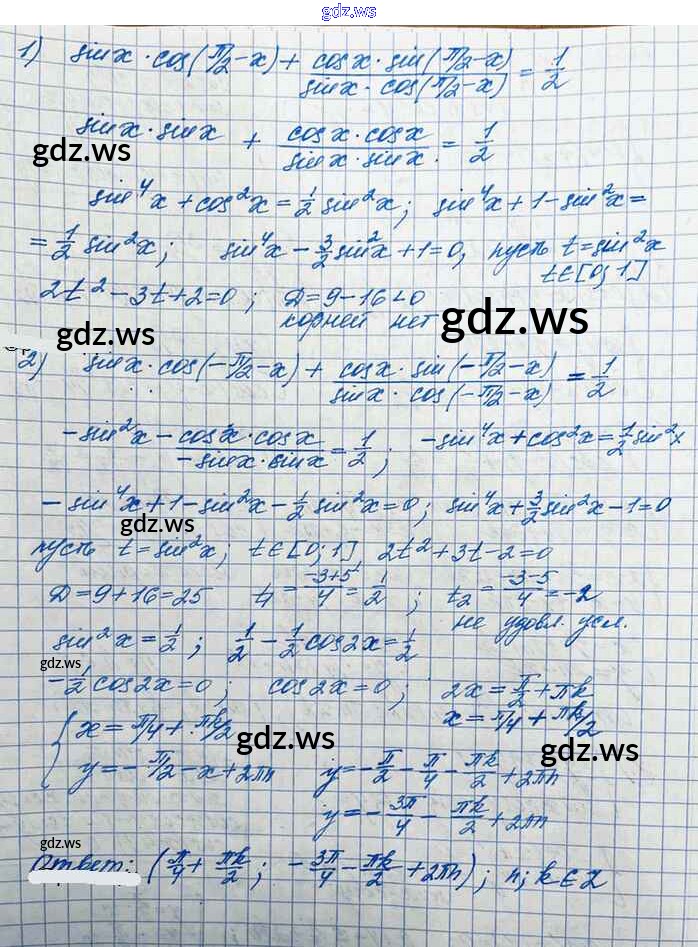 gdz.ws
1) sin x · cos(π/2 − x) + (cos x · sin(π/2 − x))/(sin x · cos(π/2 − x)) = 1/2
sin x · sin x + (cos x · cos x)/(sin x · sin x) = 1/2
gdz.ws
sin⁴x + cos²x = 1/2 sin²x; sin⁴x + 1 − sin²x =
= 1/2 sin²x; sin⁴x − 3/2 sin²x + 1 = 0, пусть t = sin²x
t ∈ [0; 1]
2t² − 3t + 2 = 0; D = 9 − 16 < 0
корней нет
gdz.ws
gdz.ws
2) sin x · cos(−π/2 − x) + (cos x · sin(−π/2 − x))/(sin x · cos(−π/2 − x)) = 1/2
−sin²x − (cos x · cos x)/(−sin x · sin x) = 1/2; −sin⁴x + cos²x = 1/2 sin²x
−sin⁴x + 1 − sin²x − 1/2 sin²x = 0; sin⁴x + 3/2 sin²x − 1 = 0
gdz.ws
пусть t = sin²x; t ∈ [0; 1] 2t² + 3t − 2 = 0
D = 9 + 16 = 25 t₁ = (−3+5)/4 = 1/2; t₂ = (−3−5)/4 = −2
не удовл. усл.
sin²x = 1/2; 1/2 − 1/2 cos 2x = 1/2
gdz.ws
−1/2 cos 2x = 0; cos 2x = 0; 2x = π/2 + πk
x = π/4 + πk/2
{ x = π/4 + πk/2
gdz.ws
gdz.ws
y = −π/2 − x + 2πn y = −π/2 − π/4 − πk/2 + 2πn
y = −3π/4 − πk/2 + 2πn
gdz.ws
Ответ: (π/4 + πk/2; −3π/4 − πk/2 + 2πn); n; k ∈ Z